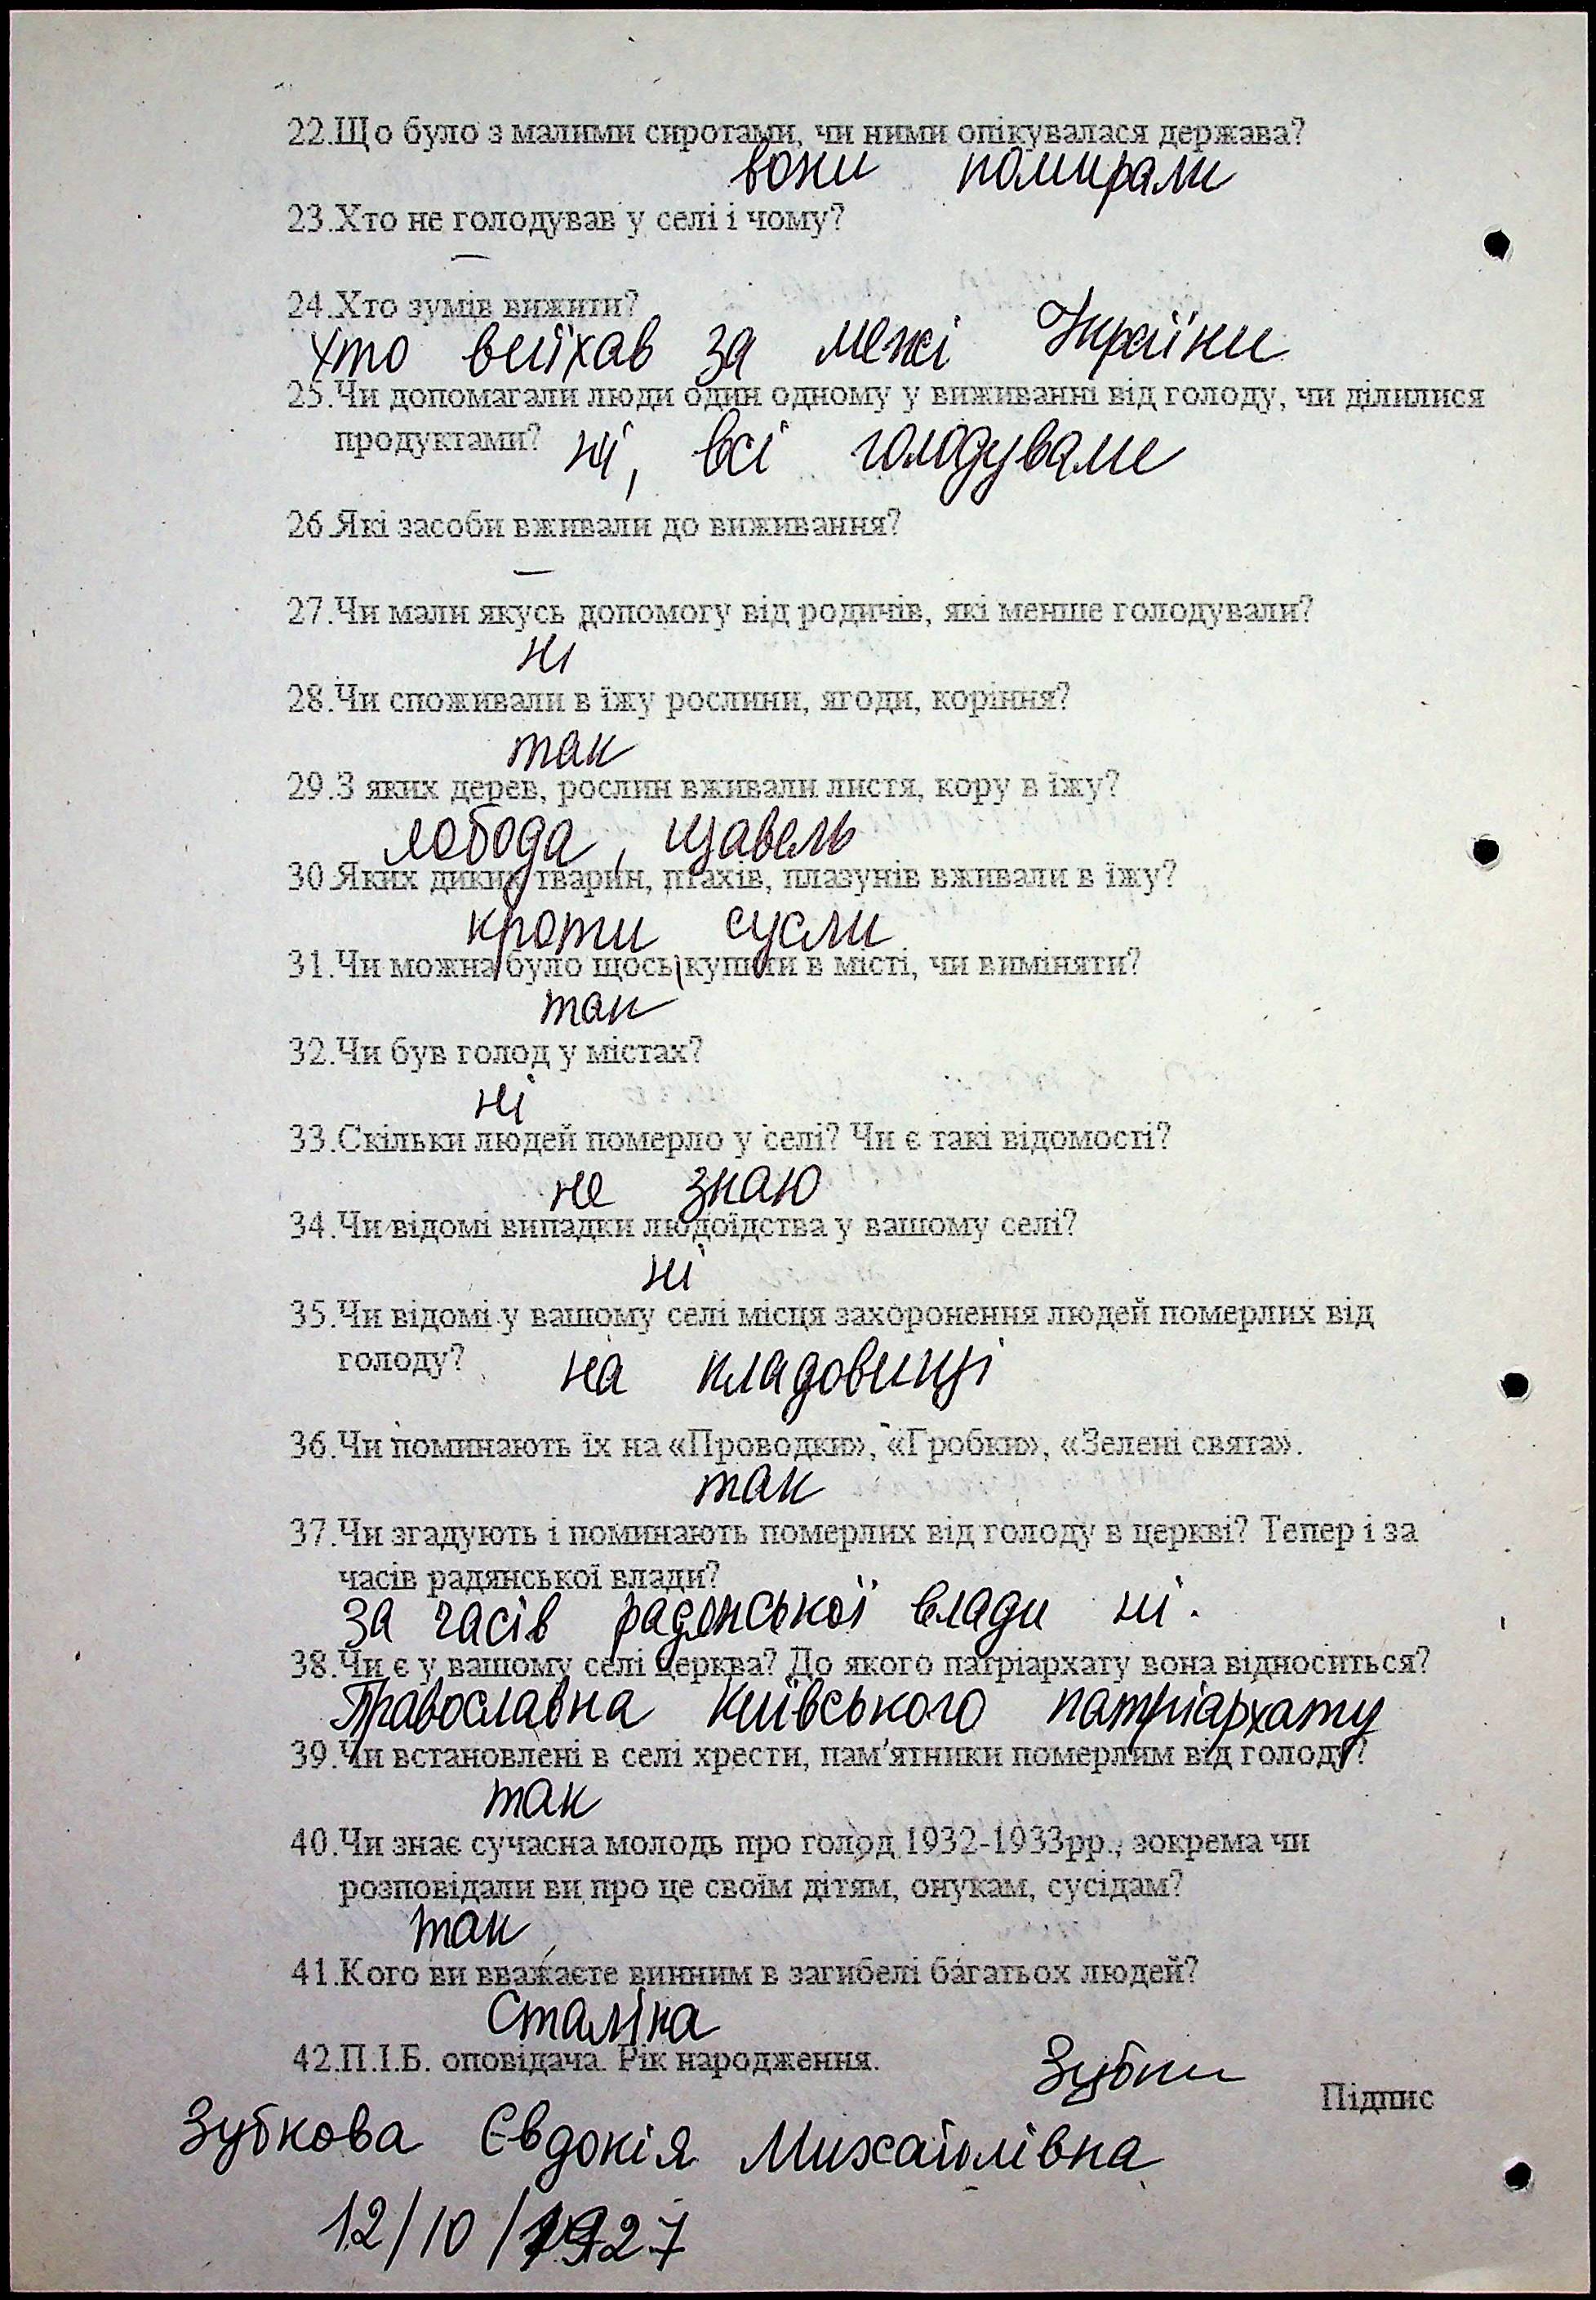 22.Що було з малими сиротами, чи ними опікувалася держава?
вони помирали
23.Хто не голодував у селі і чому?
—
24.Хто зумів вижити?
хто виїхав за межі України
25.Чи допомагали люди один одному у виживанні від голоду, чи ділилися
продуктами? ні, всі голодували
26.Які засоби вживали до виживання?
—
27.Чи мали якусь допомогу від родичів, які менше голодували?
ні
28.Чи споживали в їжу рослини, ягоди, коріння?
так
29.З яких дерев, рослин вживали листя, кору в їжу?
лобода, щавель
30.Яких диких тварин, птахів, плазунів вживали в їжу?
кроти сусли
31.Чи можна було щось купити в місті, чи виміняти?
так
32.Чи був голод у містах?
ні
33.Скільки людей померло у селі? Чи є такі відомості?
не знаю
34.Чи відомі випадки людоїдства у вашому селі?
ні
35.Чи відомі у вашому селі місця захоронення людей померлих від
голоду? на кладовищі
36.Чи поминають їх на «Проводки», «Гробки», «Зелені свята».
так
37.Чи згадують і поминають померлих від голоду в церкві? Тепер і за
часів радянської влади?
за часів радянської влади ні.
38.Чи є у вашому селі церква? До якого патріархату вона відноситься?
Православна Київського патріархату
39.Чи встановлені в селі хрести, пам'ятники померлим від голоду?
так
40.Чи знає сучасна молодь про голод 1932-1933рр., зокрема чи
розповідали ви про це своїм дітям, онукам, сусідам?
так
41.Кого ви вважаєте винним в загибелі багатьох людей?
Сталіна
42.П.І.Б. оповідача. Рік народження.
Підпис
Зубкова Євдокія Михайлівна
12/10/1927